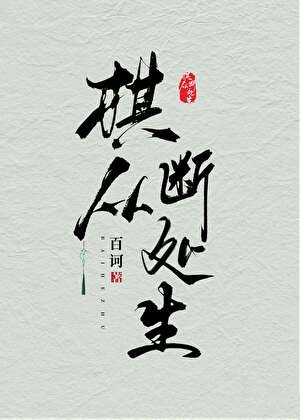 棋
从断处生
百诃
著
BAIHEZHU